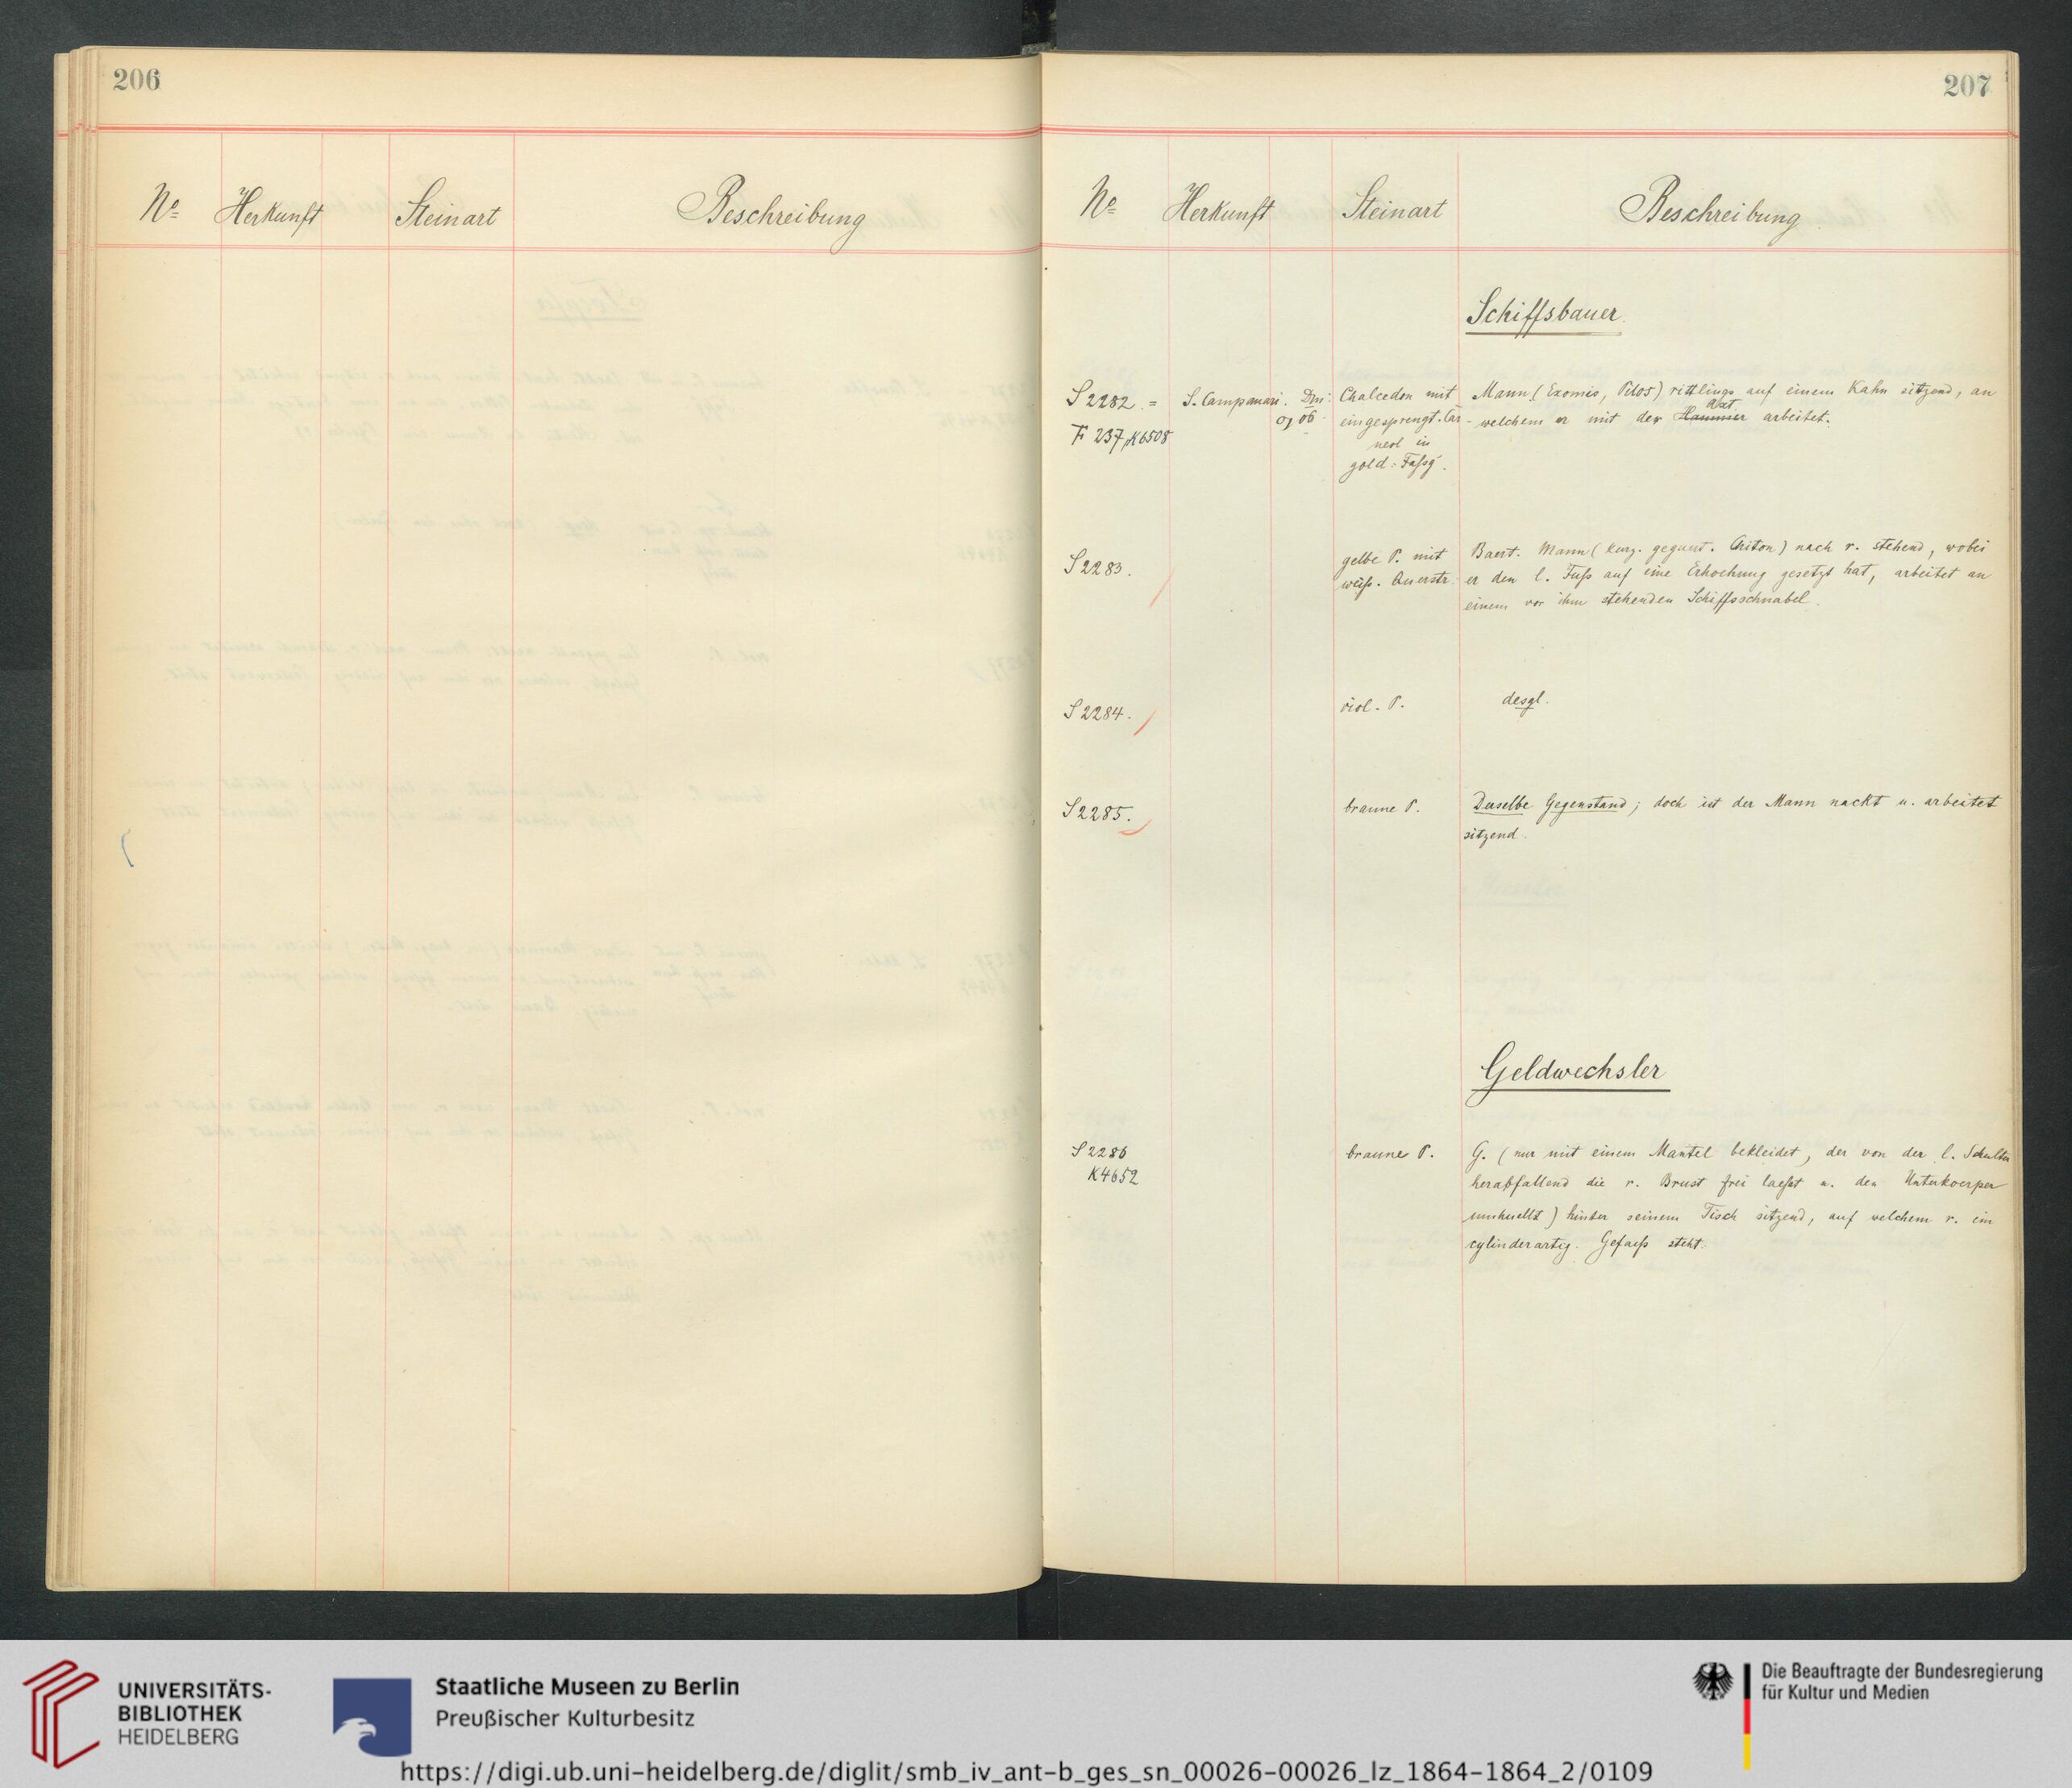 206
Nº Herkunft Steinart Beschreibung
207
Nº Herkunft Steinart Beschreibung
Schiffsbauer.
S 2282. = S. Campanari. Chalcedon mit Mann (Exomis, Pilos) rittlings auf einem Kahn sitzend, an
Axt
F 237, K6508 eingesprengt. Car- welchem er mit der Hammer arbeitet.
neol in
gold: Faßg.
S 2283. gelbe P. mit Baert. Mann (kurz. geguert. Chiton) nach r. stehend, wobei
weiß. Querstr. er den l. Fuß auf eine Erhoehung gesetzt hat, arbeitet an
einem vor ihm stehenden Schiffsschnabel.
S 2284. viol. P. desgl.
S 2285. braune P. Derselbe Gegenstand; doch ist der Mann nackt u. arbeitet
sitzend.
Geldwechsler
S 2286 braune P. G. (nur mit einem Mantel bekleidet, der von der l. Schulter
K4652 herabfallend die r. Brust frei laeßt u. den Unterkoerper
umhuellt) hinter seinem Tisch sitzend, auf welchem r. ein
cylinderartig. Gefaeß steht.
UNIVERSITÄTS-
BIBLIOTHEK
HEIDELBERG
Staatliche Museen zu Berlin
Preußischer Kulturbesitz
Die Beauftragte der Bundesregierung
für Kultur und Medien
https://digi.ub.uni-heidelberg.de/diglit/smb_iv_ant-b_ges_sn_00026-00026_lz_1864-1864_2/0109